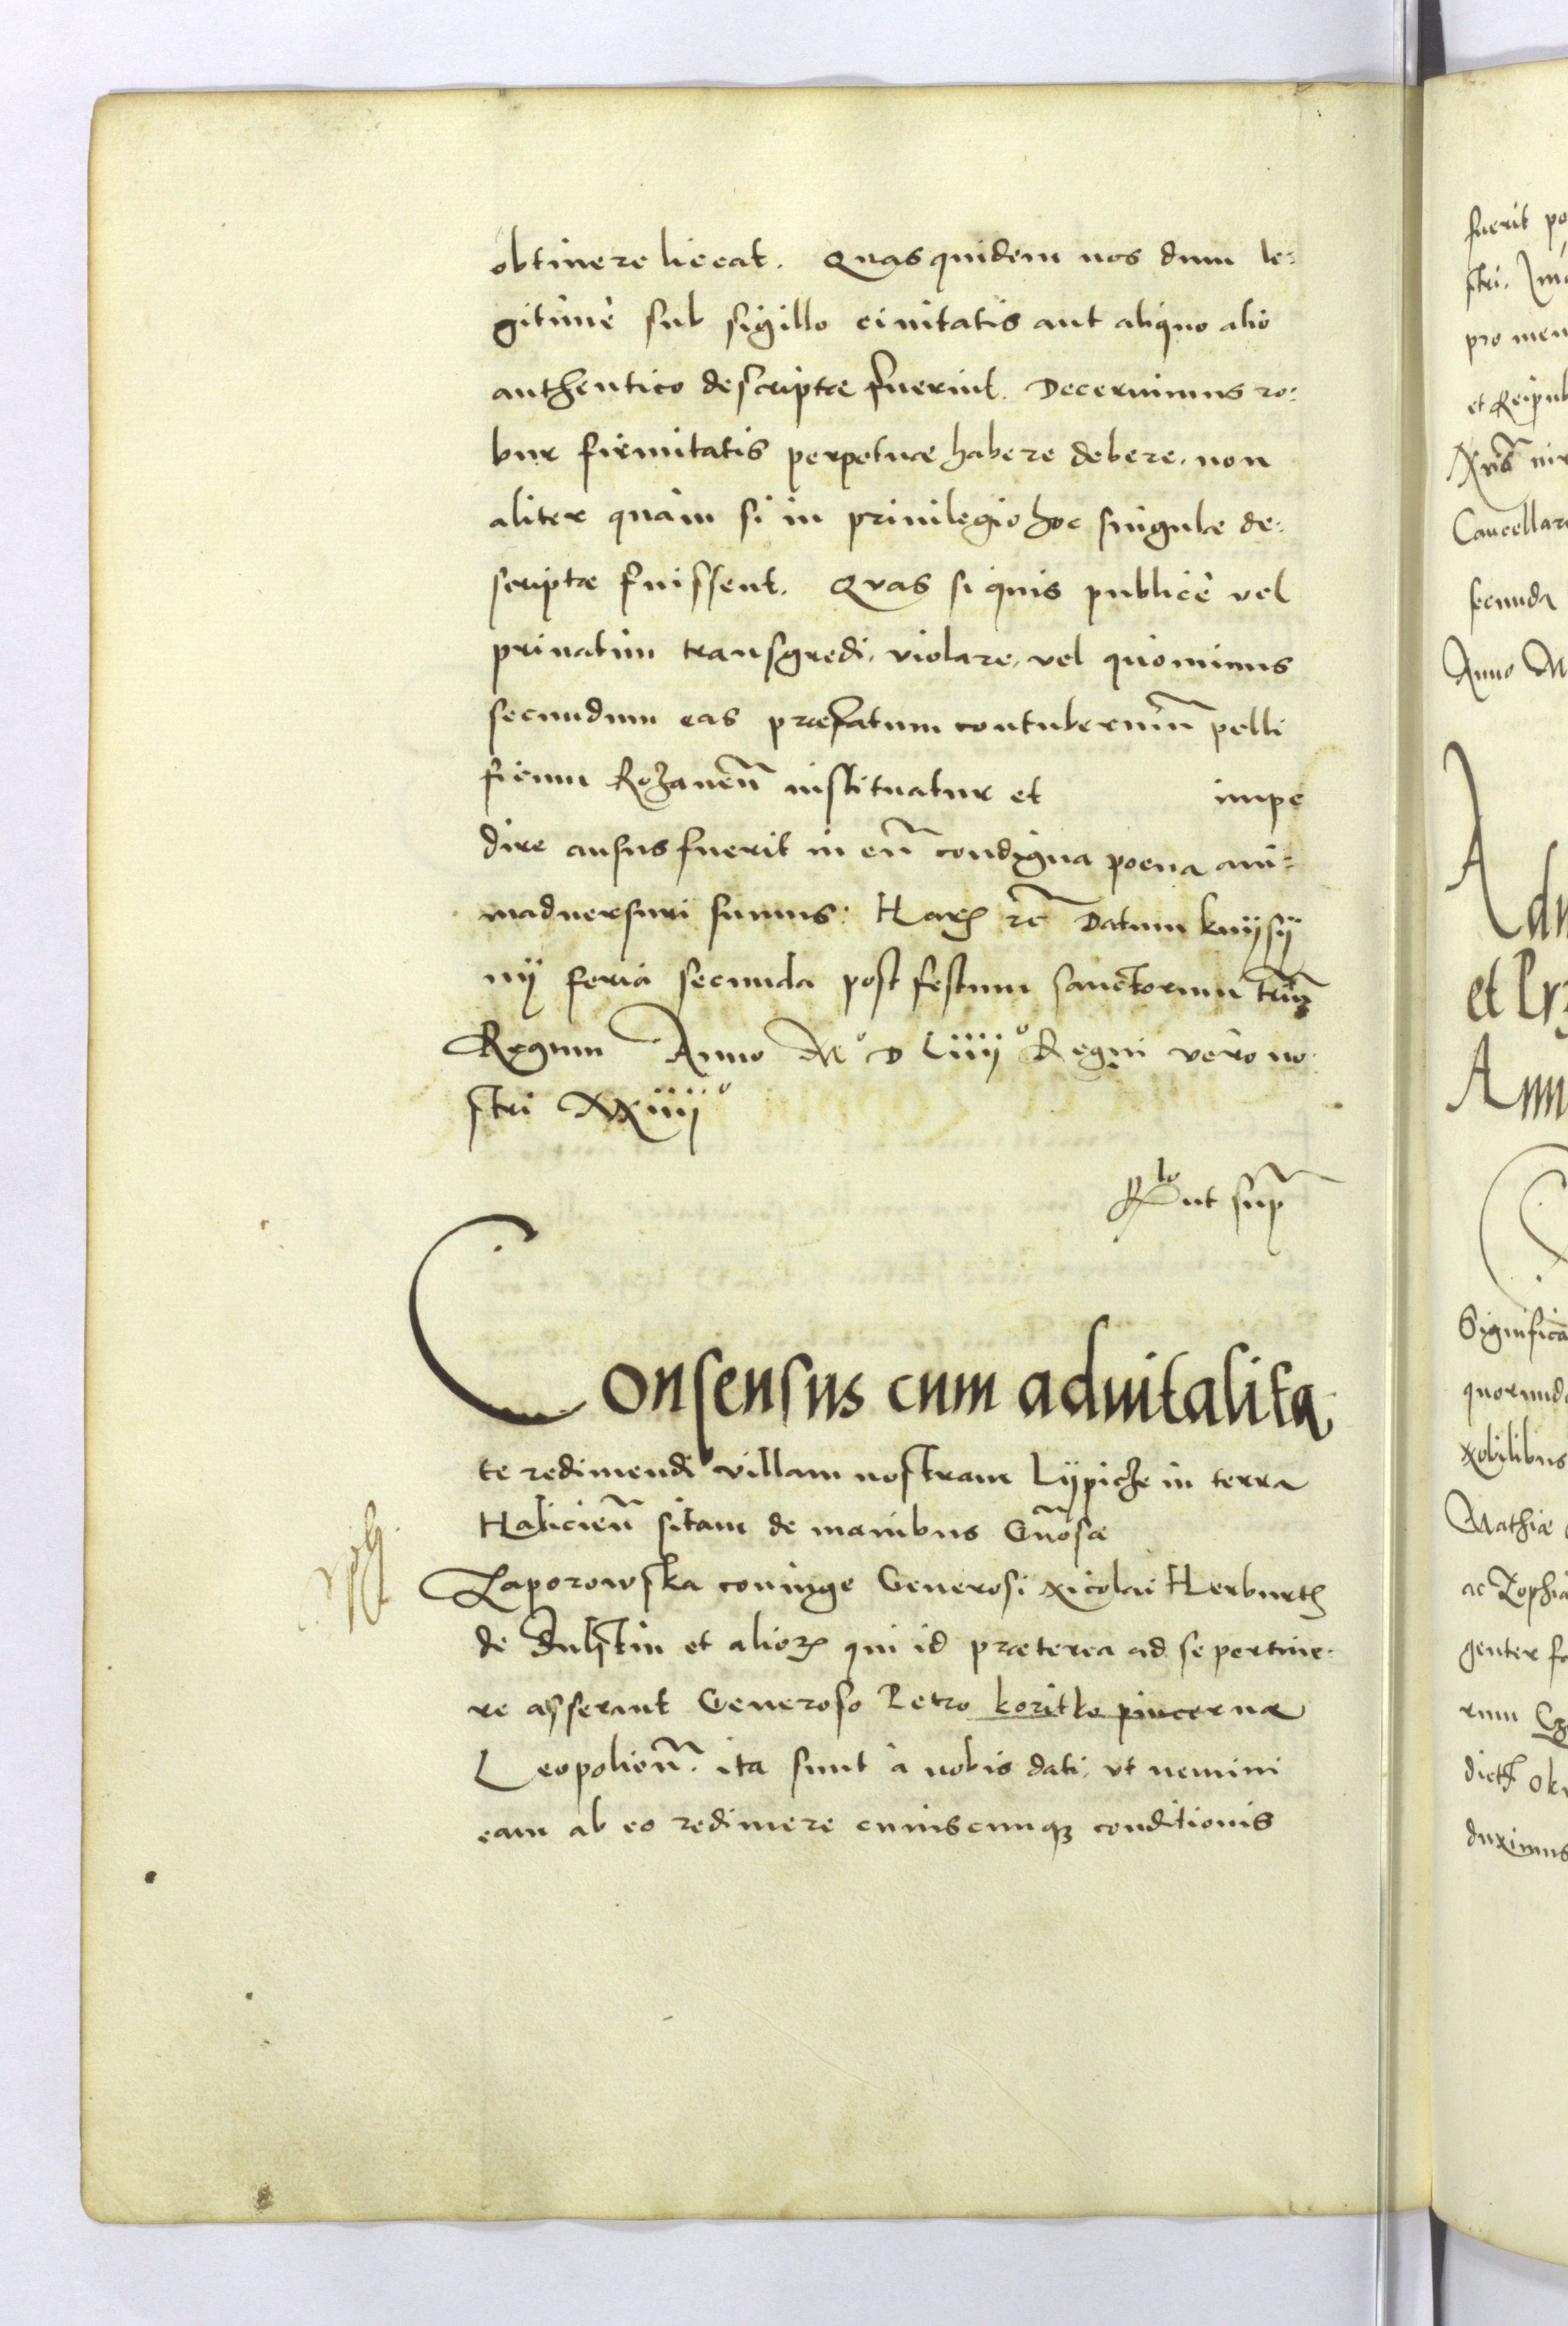 obtinere liceat. Quas quidem nos dum le:
gitimè sub sigillo ciuitatis aut aliquo alio
authentico descriptæ fuerint. Decernimus ro:
bur firmitatis perpetuæ habere debere, non
aliter quàm si in priuilegio hoc singulæ de:
scriptæ fuissent. Quas si quis publicè vel
priuatim transgredi, violare, vel quominus
secundum eas præfatum contuberniũ pelli
ficum Rozaneñ instituatur et impe
dire ausus fuerit in eũ condigna poena ani=
maduersuri sumus. Harꝫ rc̃ Datum knÿsÿ
nÿ feria secunda post festum sanctorum triũ
Regum Anno Mº D Liiijº Regni vero no
stri XXiiijº
Rlo ut sup
Consensus cum aduitalita
te redimendi villam nostram Lÿpicze in terra
Halicieñ sitam de manibus Gñosæ
Zaporowska coniuge Generosi Nicolai Herburth
de Dulstin et alioꝝ qui id præterea ad se pertine.
re asserant Generoso Petro koritko pincernæ
Leopolieñ. ita sunt à nobis dati, vt nemini
eam ab eo redimere cuiuscunqꝫ conditionis
fuerit po
stri. Ima
pro men
et Reipub
Cancellar
secunda
Anno M
Adu
et Pr
Ann
Significa
quorunda
Nobilibus
Mathiæ
ac Zophia
genter fa
rum
dictꝫ Ok
duximus